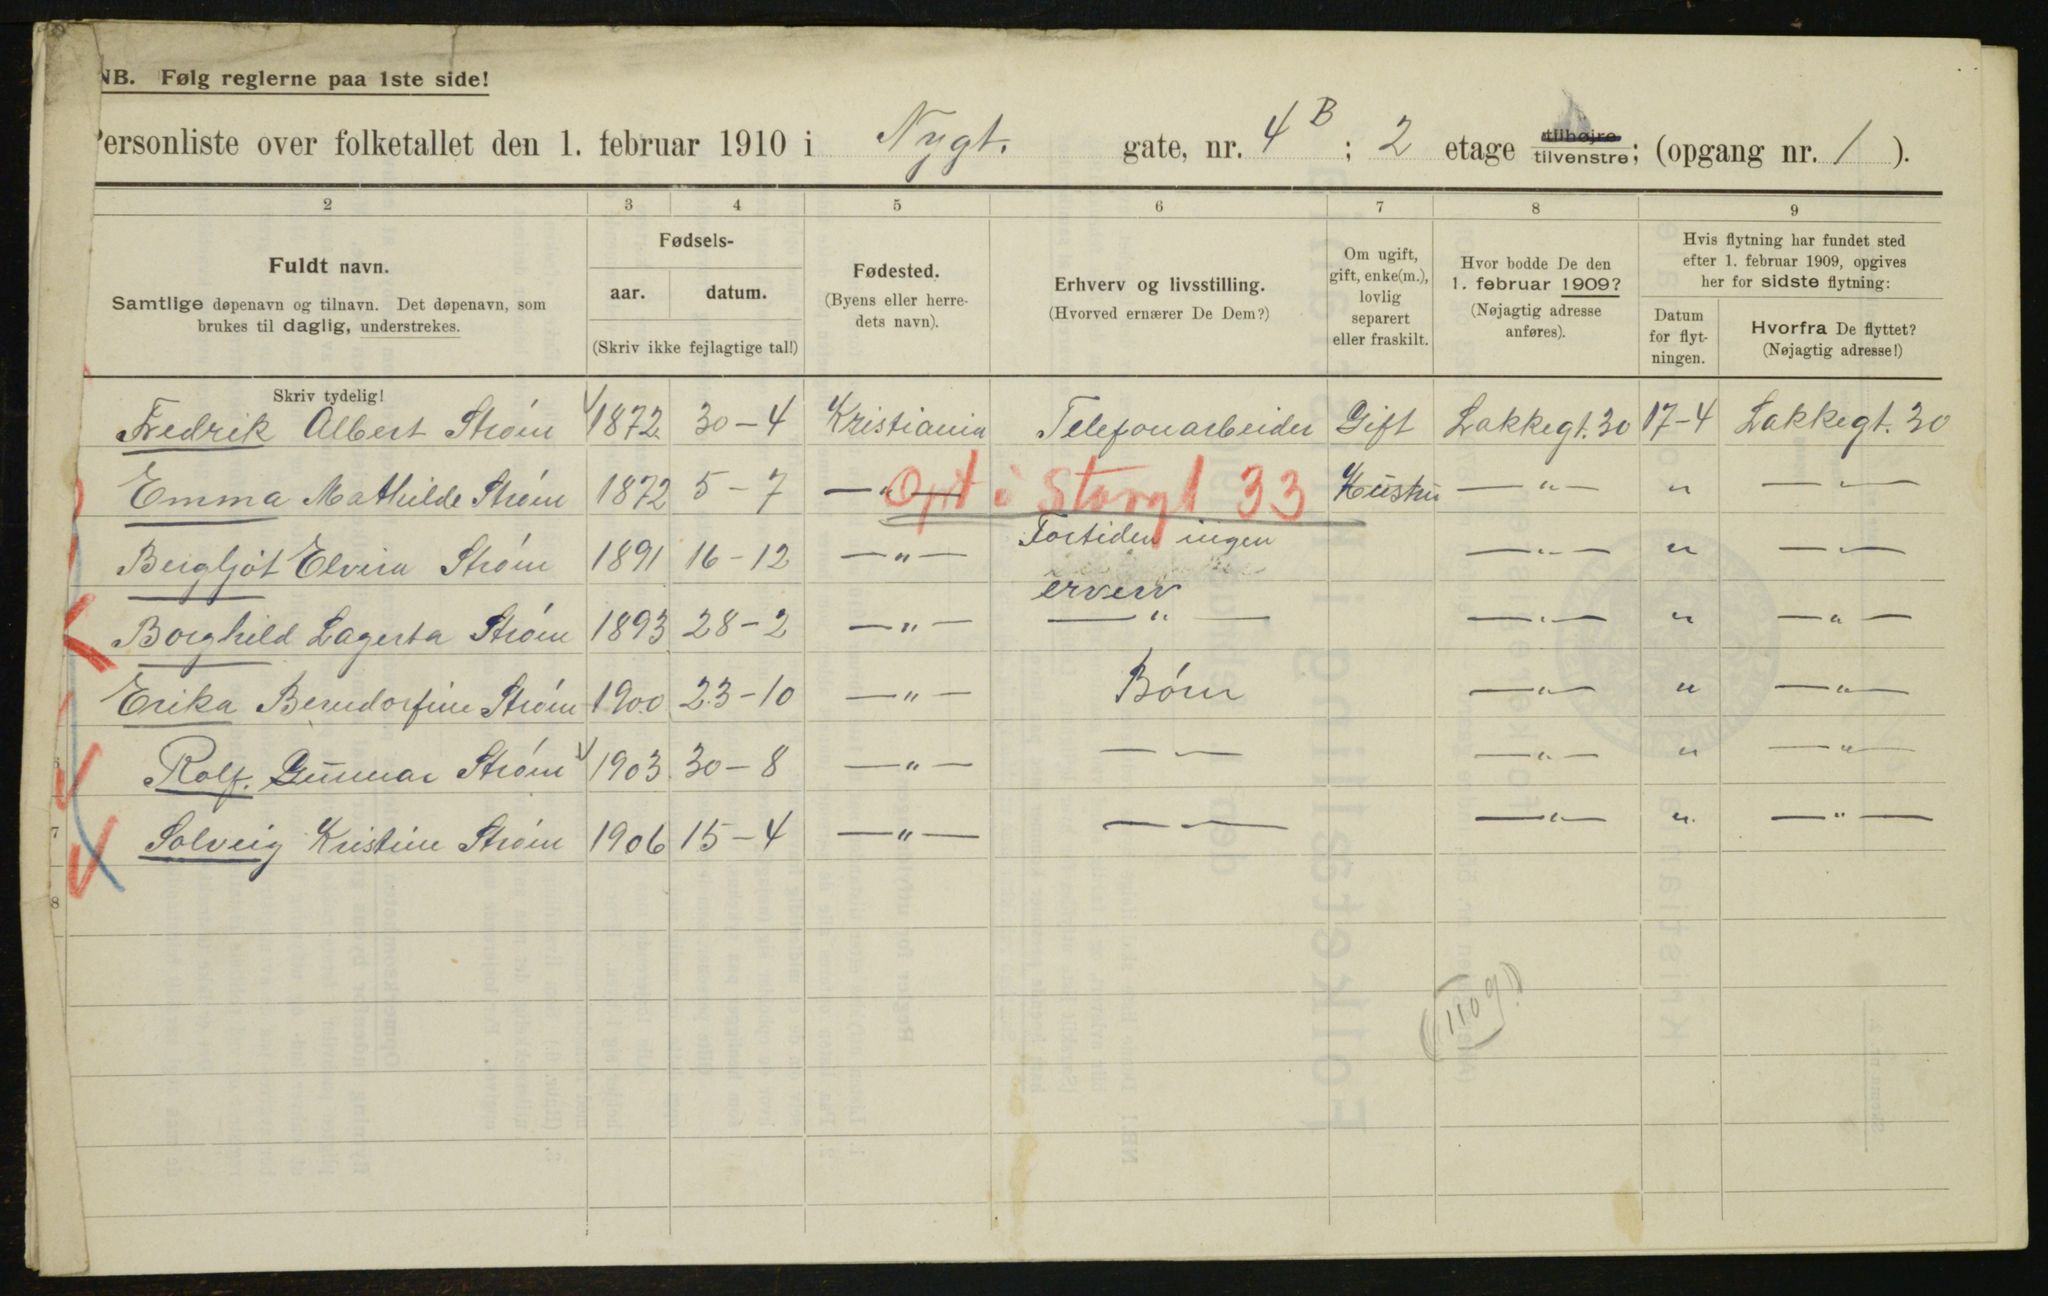 NB. Følg reglerne paa 1ste side!
Personliste over folketallet den 1. februar 1910 i Nygt. gate, nr. 4B; 2 etage tilhøjre tilvenstre; (opgang nr. 1).
2 3 4 5 6 7 8 9
Fuldt navn.
Samtlige døpenavn og tilnavn. Det døpenavn, som
brukes til daglig, understrekes.
Fødsels-
aar. datum.
(Skriv ikke fejlagtige tal!)
Fødested.
(Byens eller herre-
dets navn).
Erhverv og livsstilling.
(Hvorved ernærer De Dem?)
Om ugift,
gift, enke(m.),
lovlig
separert
eller fraskilt.
Hvor bodde De den
1. februar 1909?
(Nøjagtig adresse
anføres).
Hvis flytning har fundet sted
efter 1. februar 1909, opgives
her for sidste flytning:
Datum
for flyt-
ningen.
Hvorfra De flyttet?
(Nøjagtig adresse!)
Skriv tydelig!
Fredrik Albert Strøm 1872 30-4 Kristiania Telefonarbeider Gift Lakkegt. 30 17-4 Lakkegt. 30
Emma Mathilde Strøm 1872 5-7 —"— Opt i Storgt 33 Hustru —"— " —"—
Bergljot Elvira Strøm 1891 16-12 —"— Fortiden ingen —"— " —"—
erverv
Borghild Lagerta Strøm 1893 28-2 —"— —"— —"— " —"—
Erika Berndorfine Strøm 1900 23-10 —"— Børn —"— " —"—
6 Rolf. Gunnar Strøm 1903 30-8 —"— —"— —"— " —"—
7 Solveig Kristine Strøm 1906 15-4 —"— —"— —"— " —"—
8